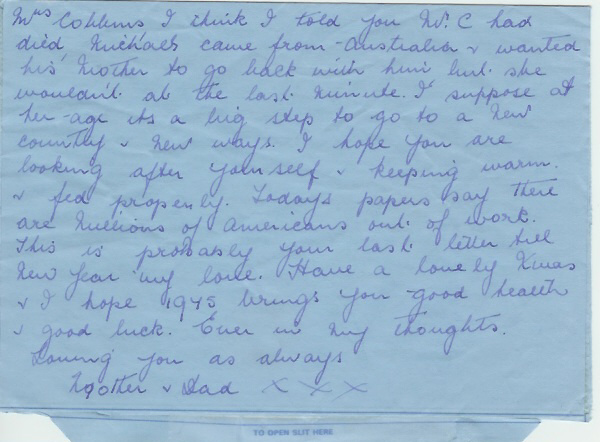 Mrs Cobbins I think I told you Mr. C had
died Michael came from Australia & wanted
his Mother to go back with him but she
wouldn't at the last minute. I suppose at
her age its a big step to go to a new
country & new ways. I hope you are
looking after yourself & keeping warm.
& fed properly. Todays papers say there
are Millions of Americans out of work.
This is probably your last letter till
New Year my love. Have a lovely Xmas
& I hope 1975 brings you good health
& good luck. Ever in my thoughts.
Loving you as always
Mother & Dad X X X
TO OPEN SLIT HERE